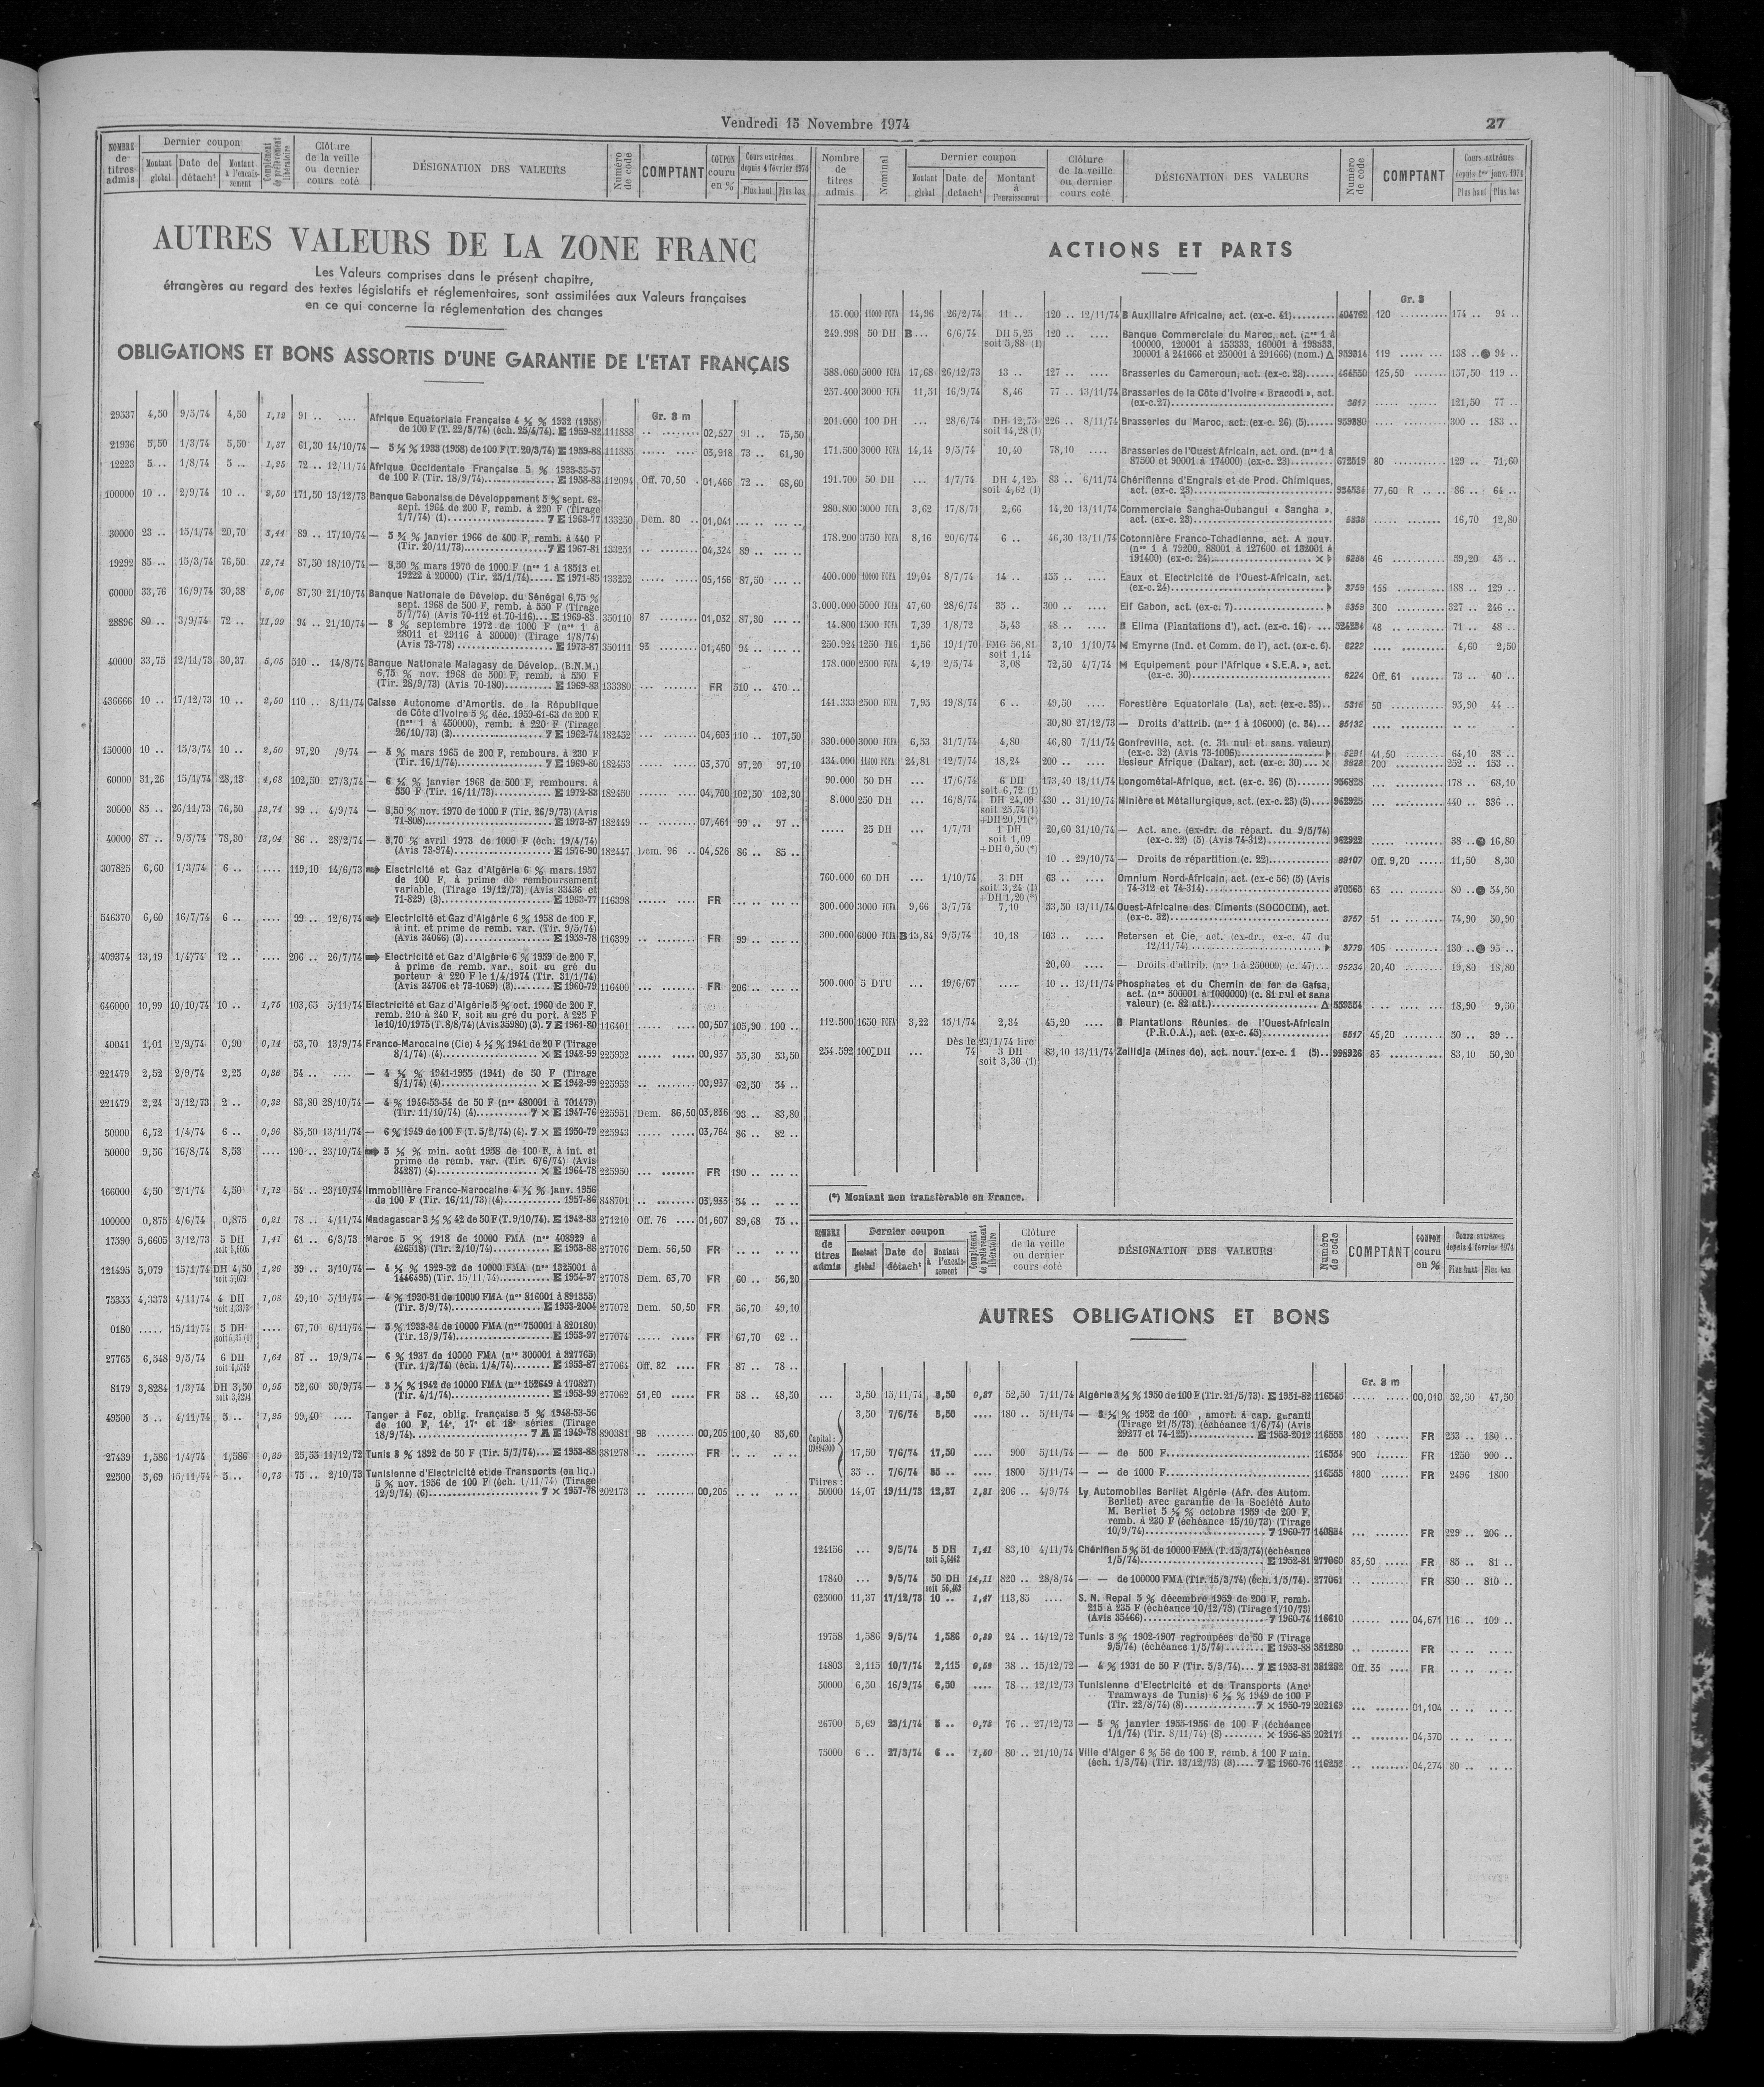 Vendredi 15 Novembre 1974
27
NOMBRE de titres admis | Dernier coupon | Montant global | Date de détach^t | Montant à l'encaissement | Complément de prélèvement libératoire | Clôture de la veille ou dernier cours coté | DÉSIGNATION DES VALEURS | Numéro de code | COMPTANT | COUPON couru en % | Cours extrêmes depuis 4 février 1974 | Plus haut | Plus bas
AUTRES VALEURS DE LA ZONE FRANC
Les Valeurs comprises dans le présent chapitre,
étrangères au regard des textes législatifs et réglementaires, sont assimilées aux Valeurs françaises
en ce qui concerne la réglementation des changes
OBLIGATIONS ET BONS ASSORTIS D'UNE GARANTIE DE L'ETAT FRANÇAIS
Gr. 3 m
29537 4,50 9/5/74 4,50 1,12 91 .. .... Afrique Equatoriale Française 4 ½ % 1932 (1958)
de 100 F (T. 22/3/74) (éch. 25/4/74). E 1959-82 111888 .. ........ 02,527 91 .. 75,50
21936 5,50 1/3/74 5,50 1,37 61,30 14/10/74 — 5 ½ % 1933 (1958) de 100 F (T. 20/3/74) E 1959-88 111885 ..... .... 03,918 73 .. 61,30
12223 5 .. 1/8/74 5 .. 1,25 72 .. 12/11/74 Afrique Occidentale Française 5 % 1933-35-57
de 100 F (Tir. 18/9/74) E 1958-83 112094 Off. 70,50 . 01,466 72 .. 68,60
100000 10 .. 2/9/74 10 .. 2,50 171,50 13/12/73 Banque Gabonaise de Développement 5 % sept. 62-
sept. 1964 de 200 F, remb. à 220 F (Tirage
1/7/74) (1) 7 E 1963-77 133250 Dem. 80 .. 01,041 ... .. ... ..
30000 23 .. 15/1/74 20,70 3,44 89 .. 17/10/74 — 5 ¾ % janvier 1966 de 400 F, remb. à 440 F
(Tir. 20/11/73) 7 E 1967-81 133251 .. ........ 04,324 89 .. ... ..
19292 85 .. 15/3/74 76,50 12,74 87,50 18/10/74 — 8,50 % mars 1970 de 1000 F (n^os 1 à 18513 et
19222 à 20000) (Tir. 25/1/74) E 1971-85 133252 ..... .... 05,156 87,50 ... ..
60000 33,76 16/9/74 30,38 5,06 87,30 21/10/74 Banque Nationale de Dévelop. du Sénégal 6,75 %
sept. 1968 de 500 F, remb. à 550 F (Tirage
5/7/74) (Avis 70-112 et 70-116) E 1969-83 350110 87 ........ 01,032 87,30 ... ..
28896 80 .. 3/9/74 72 .. 11,99 94 .. 21/10/74 — 8 % septembre 1972 de 1000 F (n^os 1 à
28011 et 29116 à 30000) (Tirage 1/8/74)
(Avis 73-778) E 1973-87 350111 95 ........ 01,460 94 .. ... ..
40000 33,75 12/11/73 30,37 5,05 510 .. 14/8/74 Banque Nationale Malagasy de Dévelop. (B.N.M.)
6,75 % nov. 1968 de 500 F, remb. à 550 F
(Tir. 28/9/73) (Avis 70-180) E 1969-83 133380 ... ....... FR 510 .. 470 ..
436666 10 .. 17/12/73 10 .. 2,50 110 .. 8/11/74 Caisse Autonome d'Amortis. de la République
de Côte d'Ivoire 5 % déc. 1959-61-63 de 200 F
(n^os 1 à 450000), remb. à 220 F (Tirage
26/10/73) (2) 7 E 1962-74 182452 ... ....... 04,603 110 .. 107,50
150000 10 .. 15/3/74 10 .. 2,50 97,20 /9/74 — 5 % mars 1965 de 200 F, rembours. à 230 F
(Tir. 16/1/74) 7 E 1969-80 182453 ..... .... 03,370 97,20 97,10
60000 31,26 15/1/74 28,13 4,68 102,50 27/3/74 — 6 ¼ % janvier 1968 de 500 F, rembours. à
550 F (Tir. 16/11/73) E 1972-83 182450 ..... .... 04,760 102,50 102,30
30000 85 .. 26/11/73 76,50 12,74 99 .. 4/9/74 — 8,50 % nov. 1970 de 1000 F (Tir. 26/9/73) (Avis
71-808) E 1973-87 182449 .. ........ 07,461 99 .. 97 ..
40000 87 .. 9/5/74 78,30 13,04 86 .. 28/2/74 — 8,70 % avril 1973 de 1000 F (éch. 19/4/74)
(Avis 73-974) E 1976-90 182447 Dem. 96 .. 04,526 86 .. 85 ..
307825 6,60 1/3/74 6 .. .... 119,10 14/6/73 Electricité et Gaz d'Algérie 6 % mars 1957
de 100 F, à prime de remboursement
variable, (Tirage 19/12/73) (Avis 33436 et
71-829) (3) E 1963-77 116398 ...... .... FR ... .. ... ..
546370 6,60 16/7/74 6 .. .... 99 .. 12/6/74 Electricité et Gaz d'Algérie 6 % 1958 de 100 F,
à int. et prime de remb. var. (Tir. 9/5/74)
(Avis 34066) (3) E 1959-78 116399 .. ........ FR 99 .. ... ..
409374 13,19 1/4/74 12 .. .... 206 .. 26/7/74 Electricité et Gaz d'Algérie 6 % 1959 de 200 F,
à prime de remb. var., soit au gré du
porteur à 220 F le 1/4/1974 (Tir. 31/1/74)
(Avis 34706 et 73-1069) (3) E 1960-79 116400 ... ....... FR 206 .. ... ..
646000 10,99 10/10/74 10 .. 1,75 103,65 5/11/74 Electricité et Gaz d'Algérie 5 % oct. 1960 de 200 F,
remb. 210 à 240 F, soit au gré du port. à 225 F
le 10/10/1975 (T. 8/8/74) (Avis 35980) (3). 7 E 1961-80 116401 ..... .... 00,507 105,90 100 ..
40041 1,01 2/9/74 0,90 0,14 53,70 13/9/74 Franco-Marocaine (Cie) 4 ½ % 1941 de 20 F (Tirage
8/1/74) (4) × E 1942-99 225952 ..... ..... 00,937 55,30 53,50
221479 2,52 2/9/74 2,25 0,36 54 .. .... — 4 ½ % 1941-1955 (1941) de 50 F (Tirage
8/1/74) (4) × E 1942-99 225953 .. ........ 00,937 62,50 54 ..
221479 2,24 3/12/73 2 .. 0,32 83,80 28/10/74 — 4 % 1946-53-54 de 50 F (n^os 480001 à 701479)
(Tir. 11/10/74) (4) 7 × E 1947-76 225951 Dem. 86,50 03,836 93 .. 83,80
50000 6,72 1/4/74 6 .. 0,96 85,50 13/11/74 — 6 % 1949 de 100 F (T. 5/2/74) (4). 7 × E 1950-79 225943 ..... ..... 03,764 86 .. 82 ..
50000 9,56 16/8/74 8,53 .... 190 .. 23/10/74 5 ½ % min. août 1958 de 100 F, à int. et
prime de remb. var. (Tir. 6/6/74) (Avis
34287) (4) × E 1964-78 225950 ... ....... FR 190 .. ... ..
166000 4,50 2/1/74 4,50 1,12 54 .. 23/10/74 Immobilière Franco-Marocaine 4 ½ % janv. 1956
de 100 F (Tir. 16/11/73) (4) 1957-86 848701 .. ........ 03,933 54 .. .. ..
100000 0,875 4/6/74 0,875 0,21 78 .. 4/11/74 Madagascar 3 ½ % 42 de 50 F (T. 9/10/74). E 1942-83 271210 Off. 76 .... 01,607 89,68 75 ..
17590 5,6605 3/12/73 5 DH soit 5,6605 1,41 61 .. 6/3/73 Maroc 5 % 1918 de 10000 FMA (n^os 408929 à
426518) (Tir. 2/10/74) E 1953-88 277076 Dem. 56,50 FR .. .. .. ..
121495 5,079 15/1/74 DH 4,50 soit 5,079 1,26 59 .. 3/10/74 — 4 ½ % 1929-32 de 10000 FMA (n^os 1325001 à
1446495) (Tir. 15/11/74) E 1954-97 277078 Dem. 63,70 FR 60 .. 56,20
75355 4,3373 4/11/74 4 DH soit 4,3373 1,08 49,10 5/11/74 — 4 % 1930-31 de 10000 FMA (n^os 816001 à 891355)
(Tir. 3/9/74) E 1953-2004 277072 Dem. 50,50 FR 56,70 49,10
0180 ..... 15/11/74 5 DH .... 67,70 6/11/74 — 5 % 1933-34 de 10000 FMA (n^os 750001 à 820180)
(Tir. 13/9/74) E 1953-97 277074 ..... ..... FR 67,70 62 ..
27765 6,548 9/5/74 6 DH 1,64 87 .. 19/9/74 — 6 % 1937 de 10000 FMA (n^os 300001 à 327765)
(Tir. 1/2/74) (éch. 1/4/74) E 1953-87 277064 Off. 82 .... FR 87 .. 78 ..
8179 3,8284 1/3/74 DH 3,50 soit 3,8284 0,95 52,60 30/9/74 — 3 ½ % 1942 de 10000 FMA (n^os 152649 à 170827)
(Tir. 4/1/74) E 1953-99 277062 51,60 ..... FR 58 .. 48,50
49500 5 .. 4/11/74 5 .. 1,25 99,40 .... Tanger à Fez, oblig. française 5 % 1948-53-56
de 100 F, 14^e, 17^e et 18^e séries (Tirage
18/9/74) 7 E 1949-78 890381 98 ........ 00,205 100,40 85,60
27439 1,586 1/4/74 1,586 0,39 25,55 14/12/72 Tunis 3 % 1892 de 50 F (Tir. 5/7/74) E 1953-88 381278 .. ........ FR .. .. .. ..
22500 5,69 15/11/74 5 .. 0,73 75 .. 2/10/73 Tunisienne d'Electricité et de Transports (en liq.)
5 % nov. 1956 de 100 F (éch. 1/11/74) (Tirage
12/9/74) (6) 7 × 1957-78 202173 .. ........ 00,205 .. .. .. ..
Nombre de titres admis | Nominal | Dernier coupon | Montant global | Date de détach^t | Montant à l'encaissement | Clôture de la veille ou dernier cours coté | DÉSIGNATION DES VALEURS | Numéro de code | COMPTANT | Cours extrêmes depuis 1^er janv. 1974 | Plus haut | Plus bas
ACTIONS ET PARTS
Gr. 3
15.000 11000 FCFA 14,96 26/2/74 11 .. 120 .. 12/11/74 B Auxiliaire Africaine, act. (ex-c. 41) 404762 120 .......... 174 .. 94 ..
249.998 50 DH B... 6/6/74 DH 5,25 soit 5,88 (1) 120 .. .... Banque Commerciale du Maroc, act. (n^os 1 à
100000, 120001 à 153333, 160001 à 193333,
200001 à 241666 et 250001 à 291666) (nom.) Δ 959314 119 ..... ... 138 .. ● 94 ..
588.060 5000 FCFA 17,68 26/12/73 13 .. 127 .. .... Brasseries du Cameroun, act. (ex-c. 28) 464550 125,50 ....... 157,50 119 ..
257.400 3000 FCFA 11,51 16/9/74 8,46 77 .. 13/11/74 Brasseries de la Côte d'Ivoire « Bracodi », act.
(ex-c. 27) 3617 ..... ...... 121,50 77 ..
201.000 100 DH ... 28/6/74 DH 12,75 soit 14,28 (1) 226 .. 8/11/74 Brasseries du Maroc, act. (ex-c. 26) (5) 959380 .... ....... 300 .. 183 ..
171.500 3000 FCFA 14,14 9/5/74 10,40 78,10 .... Brasseries de l'Ouest Africain, act. ord. (n^os 1 à
87500 et 90001 à 174000) (ex-c. 23) 672519 80 .......... 129 .. 71,60
191.700 50 DH ... 1/7/74 DH 4,125 soit 4,62 (1) 83 .. 6/11/74 Chérifienne d'Engrais et de Prod. Chimiques,
act. (ex-c. 23) 934534 77,60 R .. ... 86 .. 64 ..
280.800 3000 FCFA 3,62 17/8/71 2,66 14,20 13/11/74 Commerciale Sangha-Oubangui « Sangha »,
act. (ex-c. 23) 5335 ..... ....... 16,70 12,80
178.200 3750 FCFA 8,16 20/6/74 6 .. 46,30 13/11/74 Cotonnière Franco-Tchadienne, act. A nouv.
(n^os 1 à 79200, 88001 à 127600 et 132001 à
191400) (ex-c. 24) × 5256 46 .......... 59,20 45 ..
400.000 10000 FCFA 19,04 8/7/74 14 .. 155 .. .... Eaux et Electricité de l'Ouest-Africain, act.
(ex-c. 24) 3759 155 ......... 188 .. 129 ..
3.000.000 5000 FCFA 47,60 28/6/74 35 .. 300 .. .... Elf Gabon, act. (ex-c. 7) 5359 300 ......... 327 .. 246 ..
14.800 1500 FCFA 7,39 1/8/72 5,43 48 .. .... B Elima (Plantations d'), act. (ex-c. 16) 524234 48 .. ....... 71 .. 48 ..
250.924 1250 FMG 1,56 19/1/70 FMG 56,81 soit 1,14 3,10 1/10/74 M Emyrne (Ind. et Comm. de l'), act. (ex-c. 6). 6222 .... ........ 4,60 2,50
178.000 2500 FCFA 4,19 2/5/74 3,08 72,50 4/7/74 M Equipement pour l'Afrique « S.E.A. », act.
(ex-c. 30) 6224 Off. 61 ....... 73 .. 40 ..
141.333 2500 FCFA 7,95 19/8/74 6 .. 49,50 Forestière Equatoriale (La), act. (ex-c. 35) 5316 50 .......... 95,90 44 ..
30,80 27/12/73 — Droits d'attrib. (n^os 1 à 106000) (c. 34) 95132 .... ....... .. .. .. ..
330.000 3000 FCFA 6,53 31/7/74 4,80 46,80 7/11/74 Gonfreville, act. (c. 31 nul et sans valeur)
(ex-c. 32) (Avis 73-1006) 5291 41,50 ........ 64,10 38 ..
134.000 11400 FCFA 24,81 12/7/74 18,24 200 .. .... Lesieur Afrique (Dakar), act. (ex-c. 30) × 3828 200 ......... 252 .. 153 ..
90.000 50 DH ... 17/6/74 6 DH soit 6,72 (1) 173,40 13/11/74 Longométal-Afrique, act. (ex-c. 26) (5) 956828 ... .......... 178 .. 68,10
8.000 250 DH ... 16/8/74 DH 24,09 soit 25,74 (1) +DH 20,91(*) 430 .. 31/10/74 Minière et Métallurgique, act. (ex-c. 23) (5) 962925 ... ......... 440 .. 336 ..
..... 25 DH ... 1/7/71 1 DH soit 1,09 +DH 0,50 (*) 20,60 31/10/74 — Act. anc. (ex-dr. de répart. du 9/5/74)
(ex-c. 22) (5) (Avis 74-312) 962922 ..... ...... 38 .. ● 16,80
10 .. 29/10/74 — Droits de répartition (c. 22) 89107 Off. 9,20 ..... 11,50 8,30
760.000 60 DH ... 1/10/74 3 DH soit 3,24 (1) +DH 1,20 (*) 63 .. .... Omnium Nord-Africain, act. (ex-c 56) (5) (Avis
74-312 et 74-314) 970565 63 .......... 80 .. ● 54,50
300.000 3000 FCFA 9,66 3/7/74 7,10 53,50 13/11/74 Ouest-Africaine des Ciments (SOCOCIM), act.
(ex-c. 32) 3757 51 .. ....... 74,90 50,90
300.000 6000 FCFA B 13,84 9/5/74 10,18 103 .. .... Petersen et Cie, act. (ex-dr., ex-c. 47 du
12/11/74) 3779 105 ......... 130 .. ● 95 ..
20,60 .... — Droits d'attrib. (n^os 1 à 250000) (c. 47) 95234 20,40 ........ 19,80 18,80
500.000 5 DTU ... 19/6/67 .... 10 .. 13/11/74 Phosphates et du Chemin de fer de Gafsa,
act. (n^os 500001 à 1000000) (c. 81 nul et sans
valeur) (c. 82 att.) Δ 553554 ... .... ..... 18,90 9,50
112.500 1650 FCFA 3,22 15/1/74 2,34 45,20 .... B Plantations Réunies de l'Ouest-Africain
(P.R.O.A.), act. (ex-c. 45) 6517 45,20 ....... 50 .. 39 ..
Dès le 23/1/74 lire
254.592 100 DH ... 74 3 DH soit 3,30 (1) 83,10 13/11/74 Zellidja (Mines de), act. nouv. (ex-c. 1 (5) 998926 83 .......... 83,10 50,20
(*) Montant non transférable en France.
NOMBRE de titres admis | Dernier coupon | Montant global | Date de détach^t | Montant à l'encaissement | Complément de prélèvement libératoire | Clôture de la veille ou dernier cours coté | DÉSIGNATION DES VALEURS | Numéro de code | COMPTANT | COUPON couru en % | Cours extrêmes depuis 4 février 1974 | Plus haut | Plus bas
AUTRES OBLIGATIONS ET BONS
Gr. 3 m
... 3,50 15/11/74 3,50 0,87 52,50 7/11/74 Algérie 3 ½ % 1950 de 100 F (Tir. 21/5/73). E 1951-82 116545 ..... ..... 00,010 52,50 47,50
Capital :
3,50 7/6/74 3,50 .... 180 .. 5/11/74 — 3 ½ % 1952 de 100 , amort. à cap. garanti
(Tirage 21/5/73) (échéance 1/6/74) (Avis
29277 et 74-125) E 1953-2012 116553 180 . ..... FR 253 .. 180 ..
17,50 7/6/74 17,50 .... 900 5/11/74 — — de 500 F 116554 900 ...... FR 1250 900 ..
35 .. 7/6/74 35 .. .... 1800 5/11/74 — — de 1000 F 116555 1800 ..... FR 2496 1800
Titres :
50000 14,07 19/11/73 12,87 1,81 206 .. 4/9/74 Ly Automobiles Berliet Algérie (Afr. des Autom.
Berliet) avec garantie de la Société Auto
M. Berliet 5 ½ % octobre 1959 de 200 F,
remb. à 230 F (échéance 15/10/73) (Tirage
10/9/74) 7 1960-77 140834 ... ....... FR 229 .. 206 ..
124156 ... 9/5/74 5 DH soit 5,6462 1,41 83,10 4/11/74 Chérifien 5 % 51 de 10000 FMA (T. 15/3/74) (échéance
1/5/74) E 1952-81 277060 83,50 ..... FR 85 .. 81 ..
17840 ... 9/5/74 50 DH soit 56,463 14,11 820 .. 28/8/74 — — de 100000 FMA (Tir. 15/3/74) (éch. 1/5/74). 277061 .. ........ FR 850 .. 810 ..
625000 11,37 17/12/73 10 .. 1,47 113,85 .... S. N. Repal 5 % décembre 1959 de 200 F, remb.
215 à 235 F (échéance 10/12/73) (Tirage 1/10/73)
(Avis 35466) 7 1960-74 116610 ...... .... 04,671 116 .. 109 ..
19758 1,586 9/5/74 1,586 0,39 24 .. 14/12/72 Tunis 3 % 1902-1907 regroupées de 50 F (Tirage
9/5/74) (échéance 1/5/74) E 1953-88 381280 .. ........ FR .. .. .. ..
14803 2,115 10/7/74 2,115 0,53 38 .. 15/12/72 — 4 % 1931 de 50 F (Tir. 5/3/74) 7 E 1953-81 381282 Off. 35 .... FR .. .. .. ..
50000 6,50 16/9/74 6,50 .... 78 .. 12/12/73 Tunisienne d'Electricité et de Transports (Anc^t
Tramways de Tunis) 6 ½ % 1949 de 100 F
(Tir. 22/3/74) (8) 7 × 1950-79 202169 ... ....... 01,104 .. .. .. ..
26700 5,69 23/1/74 5 .. 0,73 76 .. 27/12/73 — 5 % janvier 1955-1956 de 100 F (échéance
1/1/74) (Tir. 8/11/74) (8) × 1956-85 202171 .. ........ 04,370 .. .. .. ..
75000 6 .. 27/3/74 6 .. 1,50 80 .. 21/10/74 Ville d'Alger 6 % 56 de 100 F, remb. à 100 F min.
(éch. 1/3/74) (Tir. 13/12/73) (3) 7 E 1960-76 116252 .. ........ 04,274 80 .. .. ..